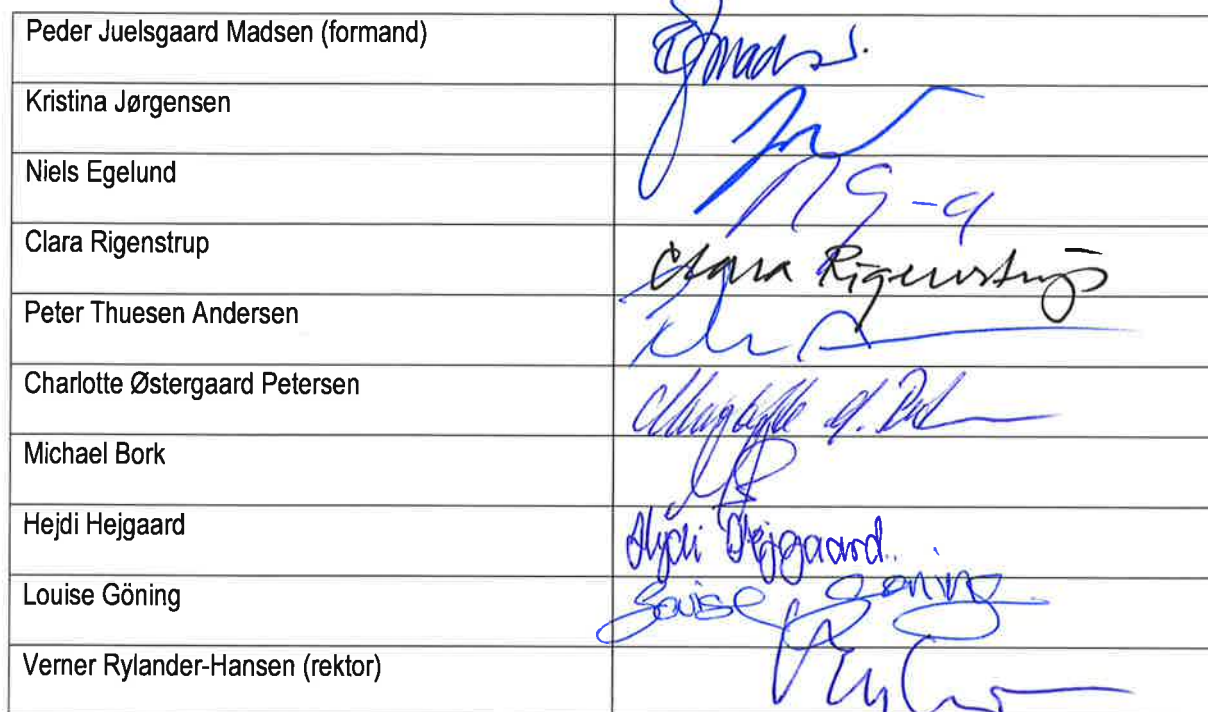 Peder Juelsgaard Madsen (formand)
Kristina Jørgensen
Niels Egelund
Clara Rigenstrup Clara Rigenstrup
Peter Thuesen Andersen
Charlotte Østergaard Petersen
Michael Bork
Hejdi Hejgaard Hejdi Hejgaard
Louise Göning Louise Göning
Verner Rylander-Hansen (rektor)